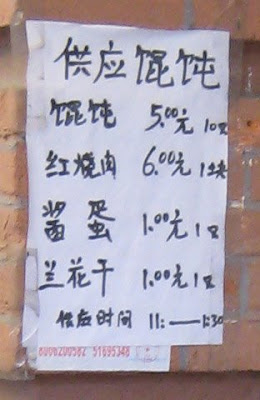 供应馄饨
馄饨 5.00元 10只
红烧肉 6.00元 1块
酱蛋 1.00元 1只
兰花干 1.00元 1只
供应时间 11:——1:30
8008200582 51695348